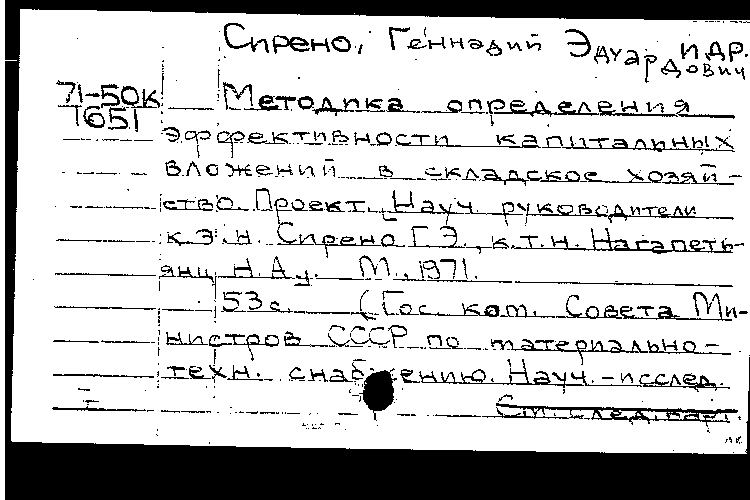 Сирено, Геннадий Эдуардович и др.
71-50к
1651
Методика определения
эффективности капитальных
вложений в складское хозяй-
ство. Проект. [Науч. руководители
к.э.н. Сирено Г.Э., к.т.н. Нагапеть-
янц Н.А]. М., 1971.
53 с. (Гос. ком. Совета Ми-
нистров СССР по материально-
техн. снабжению. Науч.-исслед.
См. след. карт.